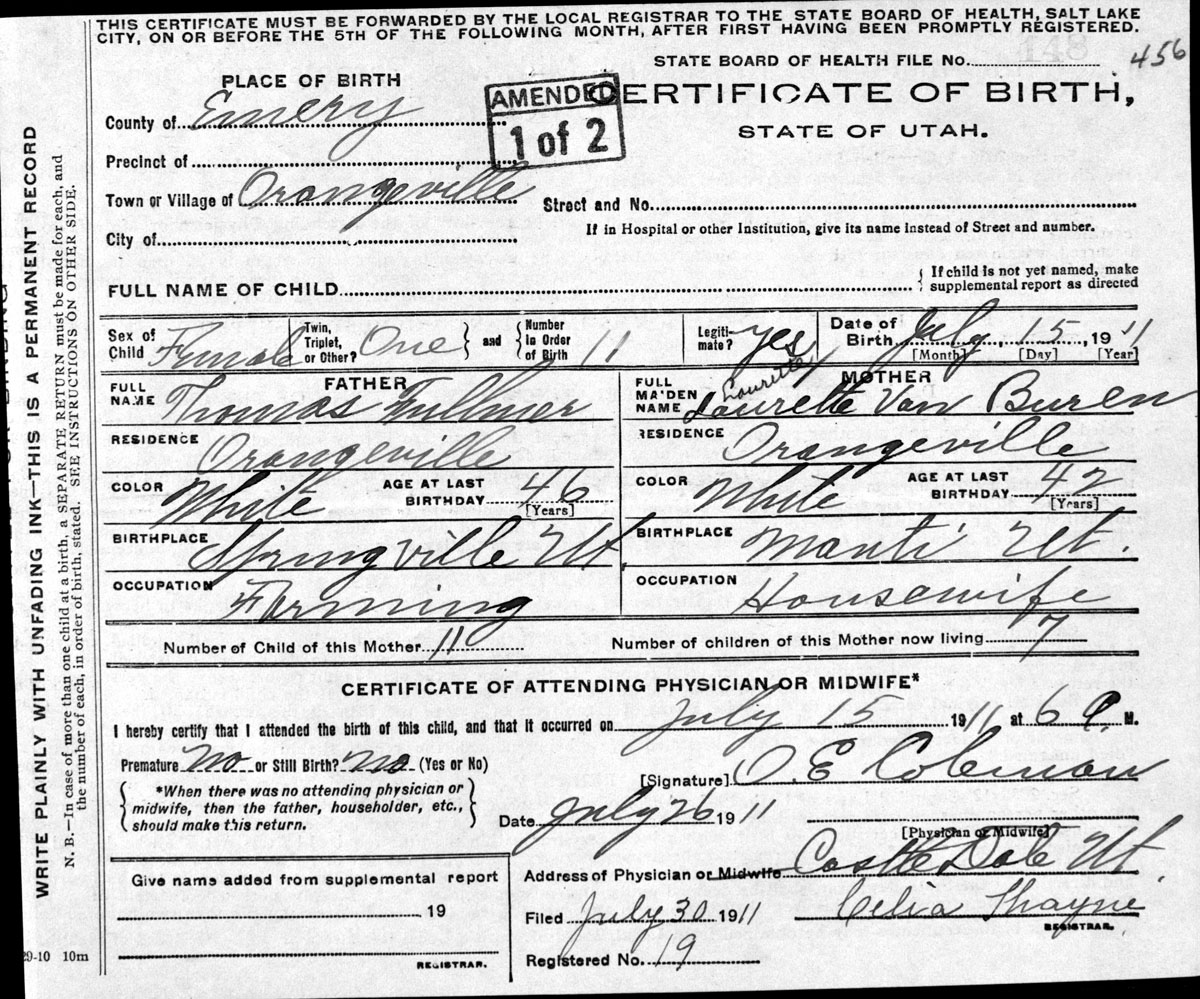 THIS CERTIFICATE MUST BE FORWARDED BY THE LOCAL REGISTRAR TO THE STATE BOARD OF HEALTH, SALT LAKE
CITY, ON OR BEFORE THE 5TH OF THE FOLLOWING MONTH, AFTER FIRST HAVING BEEN PROMPTLY REGISTERED.
STATE BOARD OF HEALTH FILE No. 456
PLACE OF BIRTH
AMENDED
1 of 2
CERTIFICATE OF BIRTH,
STATE OF UTAH.
County of Emery
Precinct of
Town or Village of Orangeville
Street and No.
City of
If in Hospital or other Institution, give its name instead of Street and number.
FULL NAME OF CHILD
{ If child is not yet named, make
supplemental report as directed
Sex of Child Female
Twin, Triplet, or Other? One } and { Number in Order of Birth 11
Legitimate? yes
Date of Birth July 15, 1911
[Month] [Day] [Year]
FATHER
FULL NAME Thomas Fullmer
RESIDENCE Orangeville
COLOR White AGE AT LAST BIRTHDAY 46
[Years]
BIRTHPLACE Springville Ut.
OCCUPATION Farming
MOTHER
Laurette
FULL MAIDEN NAME Laurette Van Buren
RESIDENCE Orangeville
COLOR White AGE AT LAST BIRTHDAY 42
[Years]
BIRTHPLACE Manti Ut.
OCCUPATION Housewife
Number of Child of this Mother 11 Number of children of this Mother now living 7
CERTIFICATE OF ATTENDING PHYSICIAN OR MIDWIFE*
I hereby certify that I attended the birth of this child, and that it occurred on July 15 1911, at 6 P. M.
Premature No or Still Birth? No (Yes or No)
[Signature] O. E Coleman
{ *When there was no attending physician or
midwife, then the father, householder, etc.,
should make this return. }
Date July 26 1911
[Physician or Midwife]
Address of Physician or Midwife Castle Dale Ut.
Give name added from supplemental report
19
REGISTRAR.
Filed July 30 1911 Celia Thayne
REGISTRAR.
Registered No. 19
29-10 10m
WRITE PLAINLY WITH UNFADING INK—THIS IS A PERMANENT RECORD
N. B.—In case of more than one child at a birth, a SEPARATE RETURN must be made for each, and
the number of each, in order of birth, stated. SEE INSTRUCTIONS ON OTHER SIDE.